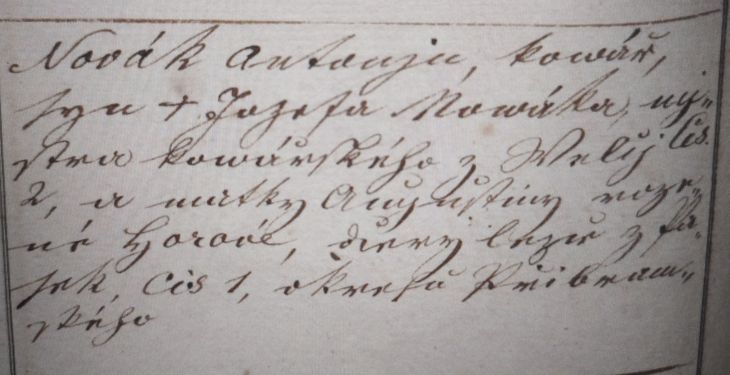 Novák Antonjn, kowář,
syn + Jozefa Nowáka, mj-
stra kowářského z Welij čis.
2, a matky Augustiny roze-
né Horové, dcery z Pa-
sek, čis 1, okresu Přibram-
ského